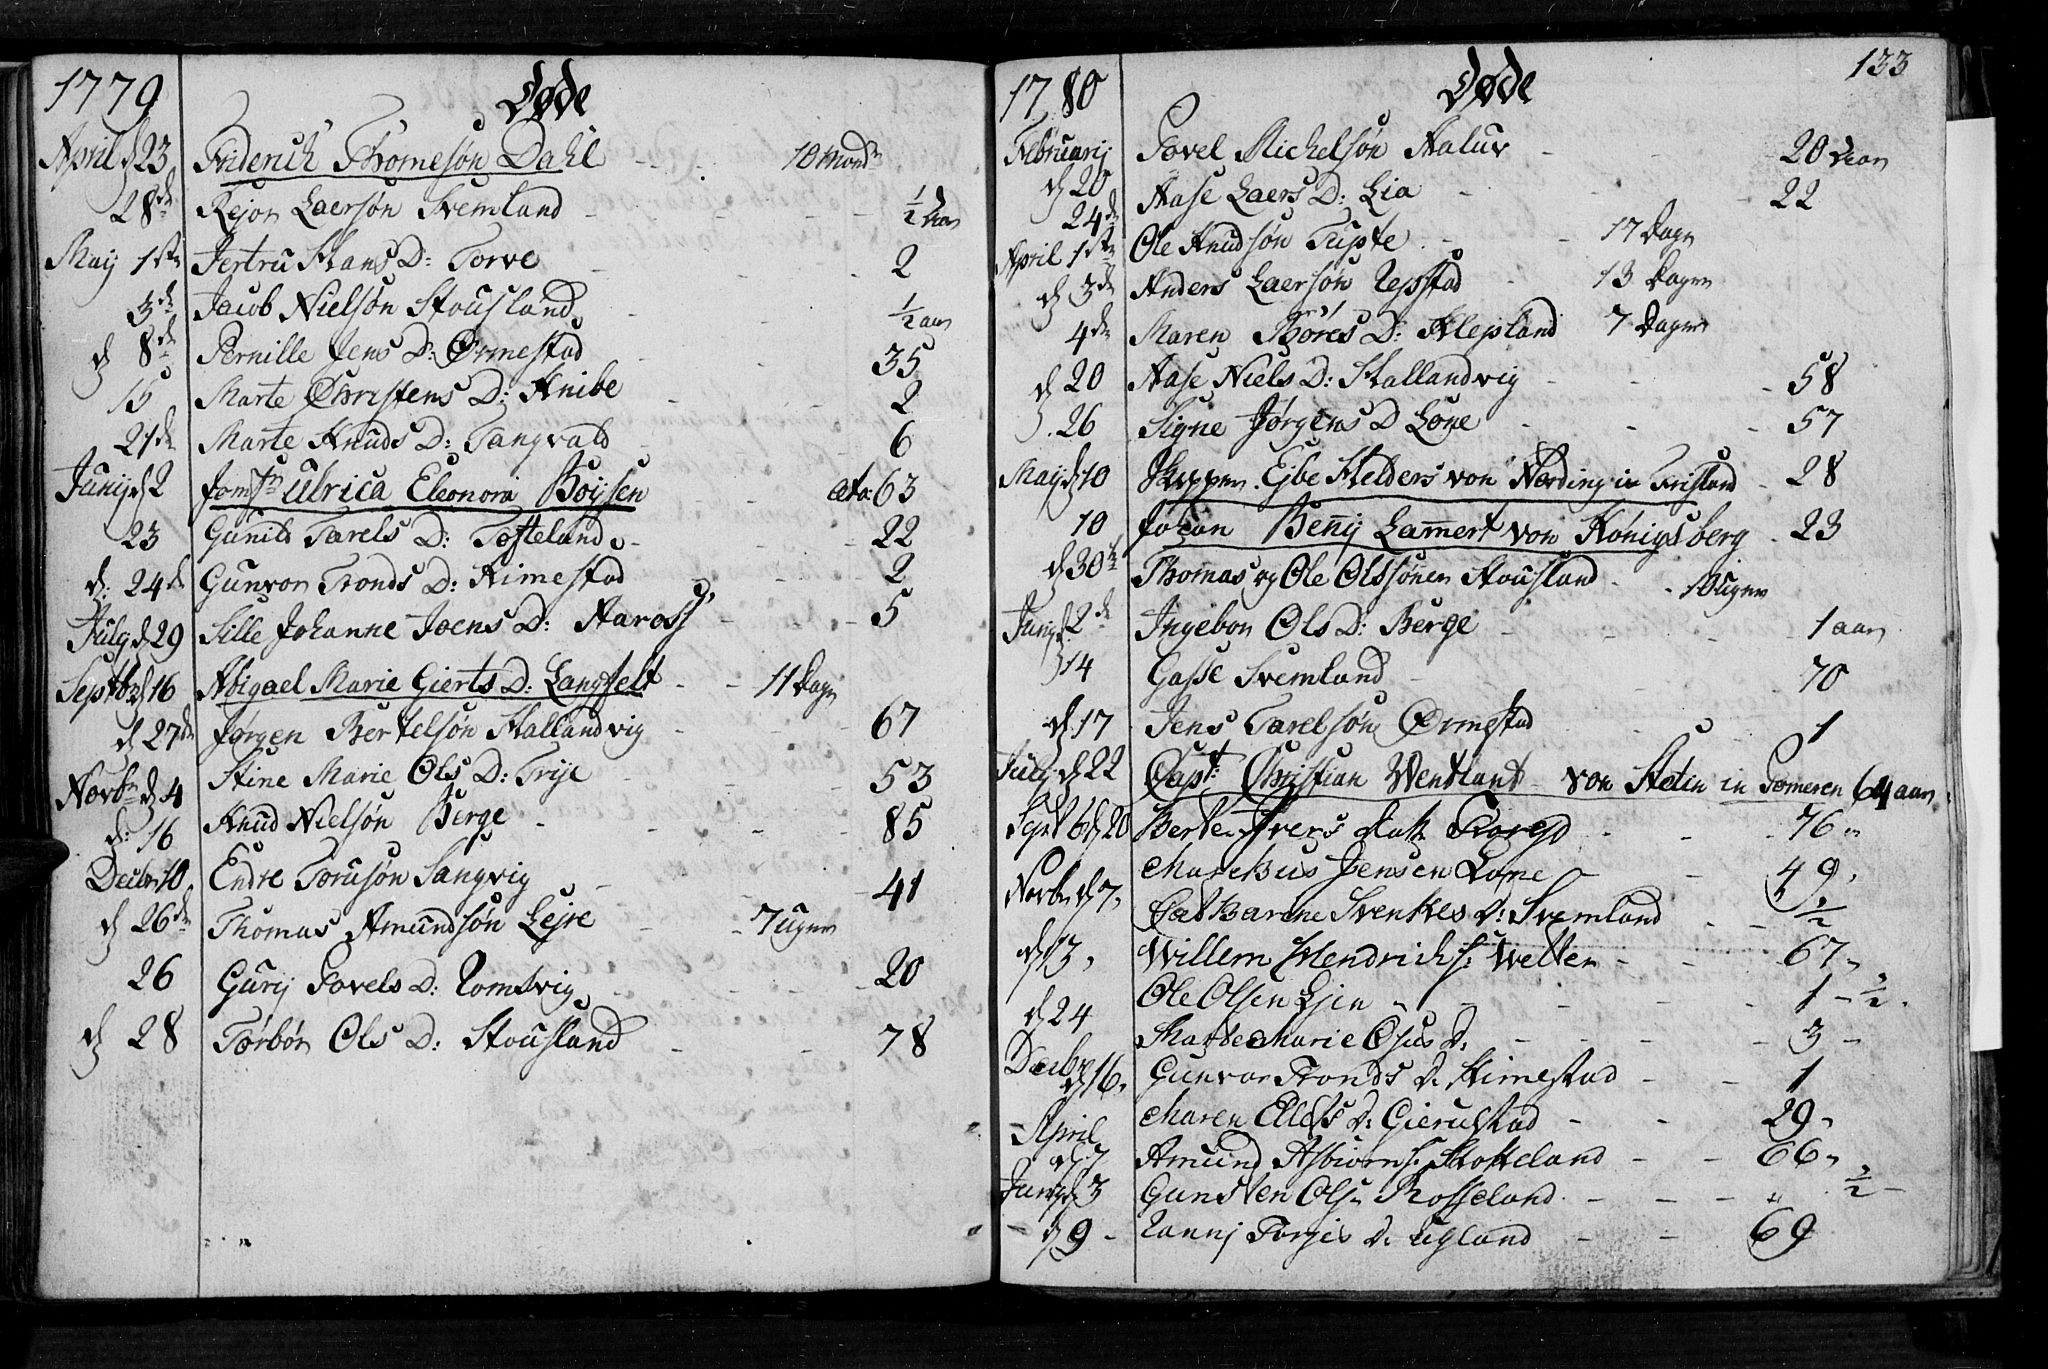 1779 Døde
April d 23 Friderich Thomesøn Dahl - - 10 Mond
28de Rejor Laersøn Svemland - - - ½ Aar
May 1ste Jertru Hans D: Torve - - 2
3de Jacob Nielsøn Stousland - - ½ aar
d 8de Pernille Jens D: Ormestad - - 35
15 Marte Christens D: Knibe - - 2
21de Marte Knuds D: Tangvald - - 6
Junij d 2 Jomfr Ulrica Eleonora Boysen - - æta: 63
23 Gunild Tarels D: Tofteland - - 22
d: 24de Gunvor Tronds D: Kimestad - - 2
July d 29 Sille Johanne Joens D: Aaross - - 5
Septbr d 16 Abigael Marie Gierts D: Langfelt - - 11 Dage
d 27de Jørgen Bertelsøn Kallandvig - - 67
Novbr d 4 Stine Marie Ols D: Trye - - 53
d: 16 Knud Nielsøn Berge - - - 85
Decbr 10 Endre Torusøn Sangvig - - 41
d 26de Thomas Amundsøn Lejre - - 7 uger
26 Gurij Povels D: Romsvig - - 20
d 28 Torbør Ols D: Stousland - - 78
133
1780 Døde
Februarij d 20 Povel Michelsøn Aalur - - 20 Aar
24d Aase Laers D: Lia - - 22
April 1ste Ole Knudsøn Tupte - - 17 Dage
d 3de Anders Laersøn Repstad - 13 Dager
4de Maren Tores D: Klepland 7 Dager
d 20 Aase Niels D: Kallandvig - - 58
26 Signe Jørgens D Lone - - 57
May d 10 Skipper Ejbe Helders von Nording in Frisland - 28
10 Johan Benj Lam̅ert von Königsberg - 23
d 30te Thomas og Ole Olssøner Stousland - - 10 uger
Junij 2de Ingebor Ols D: Berge - - 1 aar
14 Gasse Svemland - - 70
d. 17 Jens Tarelsøn Ormestad - - 1
July d 22 Capt: Christian Wentlant von Stetin in Pomeren 64 aar
Sept d 20 Berte Ivers - - 76 "
Novbr d 7, Marchus Jensen Lome - - 49,
Catharine Svenkes D: Svemland - - ½
d 13, Willem Hendrichs: Wetten - - 67 -
d 24 Ole Olsen Ljen - - 1 - ½.
Marte Marie Osus D: - - - 3 -
Decbr d 16. Gunvor Tronds D. Kimestad - - 1
April d 7 Maren Ellefs D: Gierustad - - 29 -
Amund Asbiorns: Stokkeland - - 66 -
Junij 3 Gunsten Ols: Rosseland - - - " ½ -
d 9 - Rannj Torjes D. Ugland - - 69